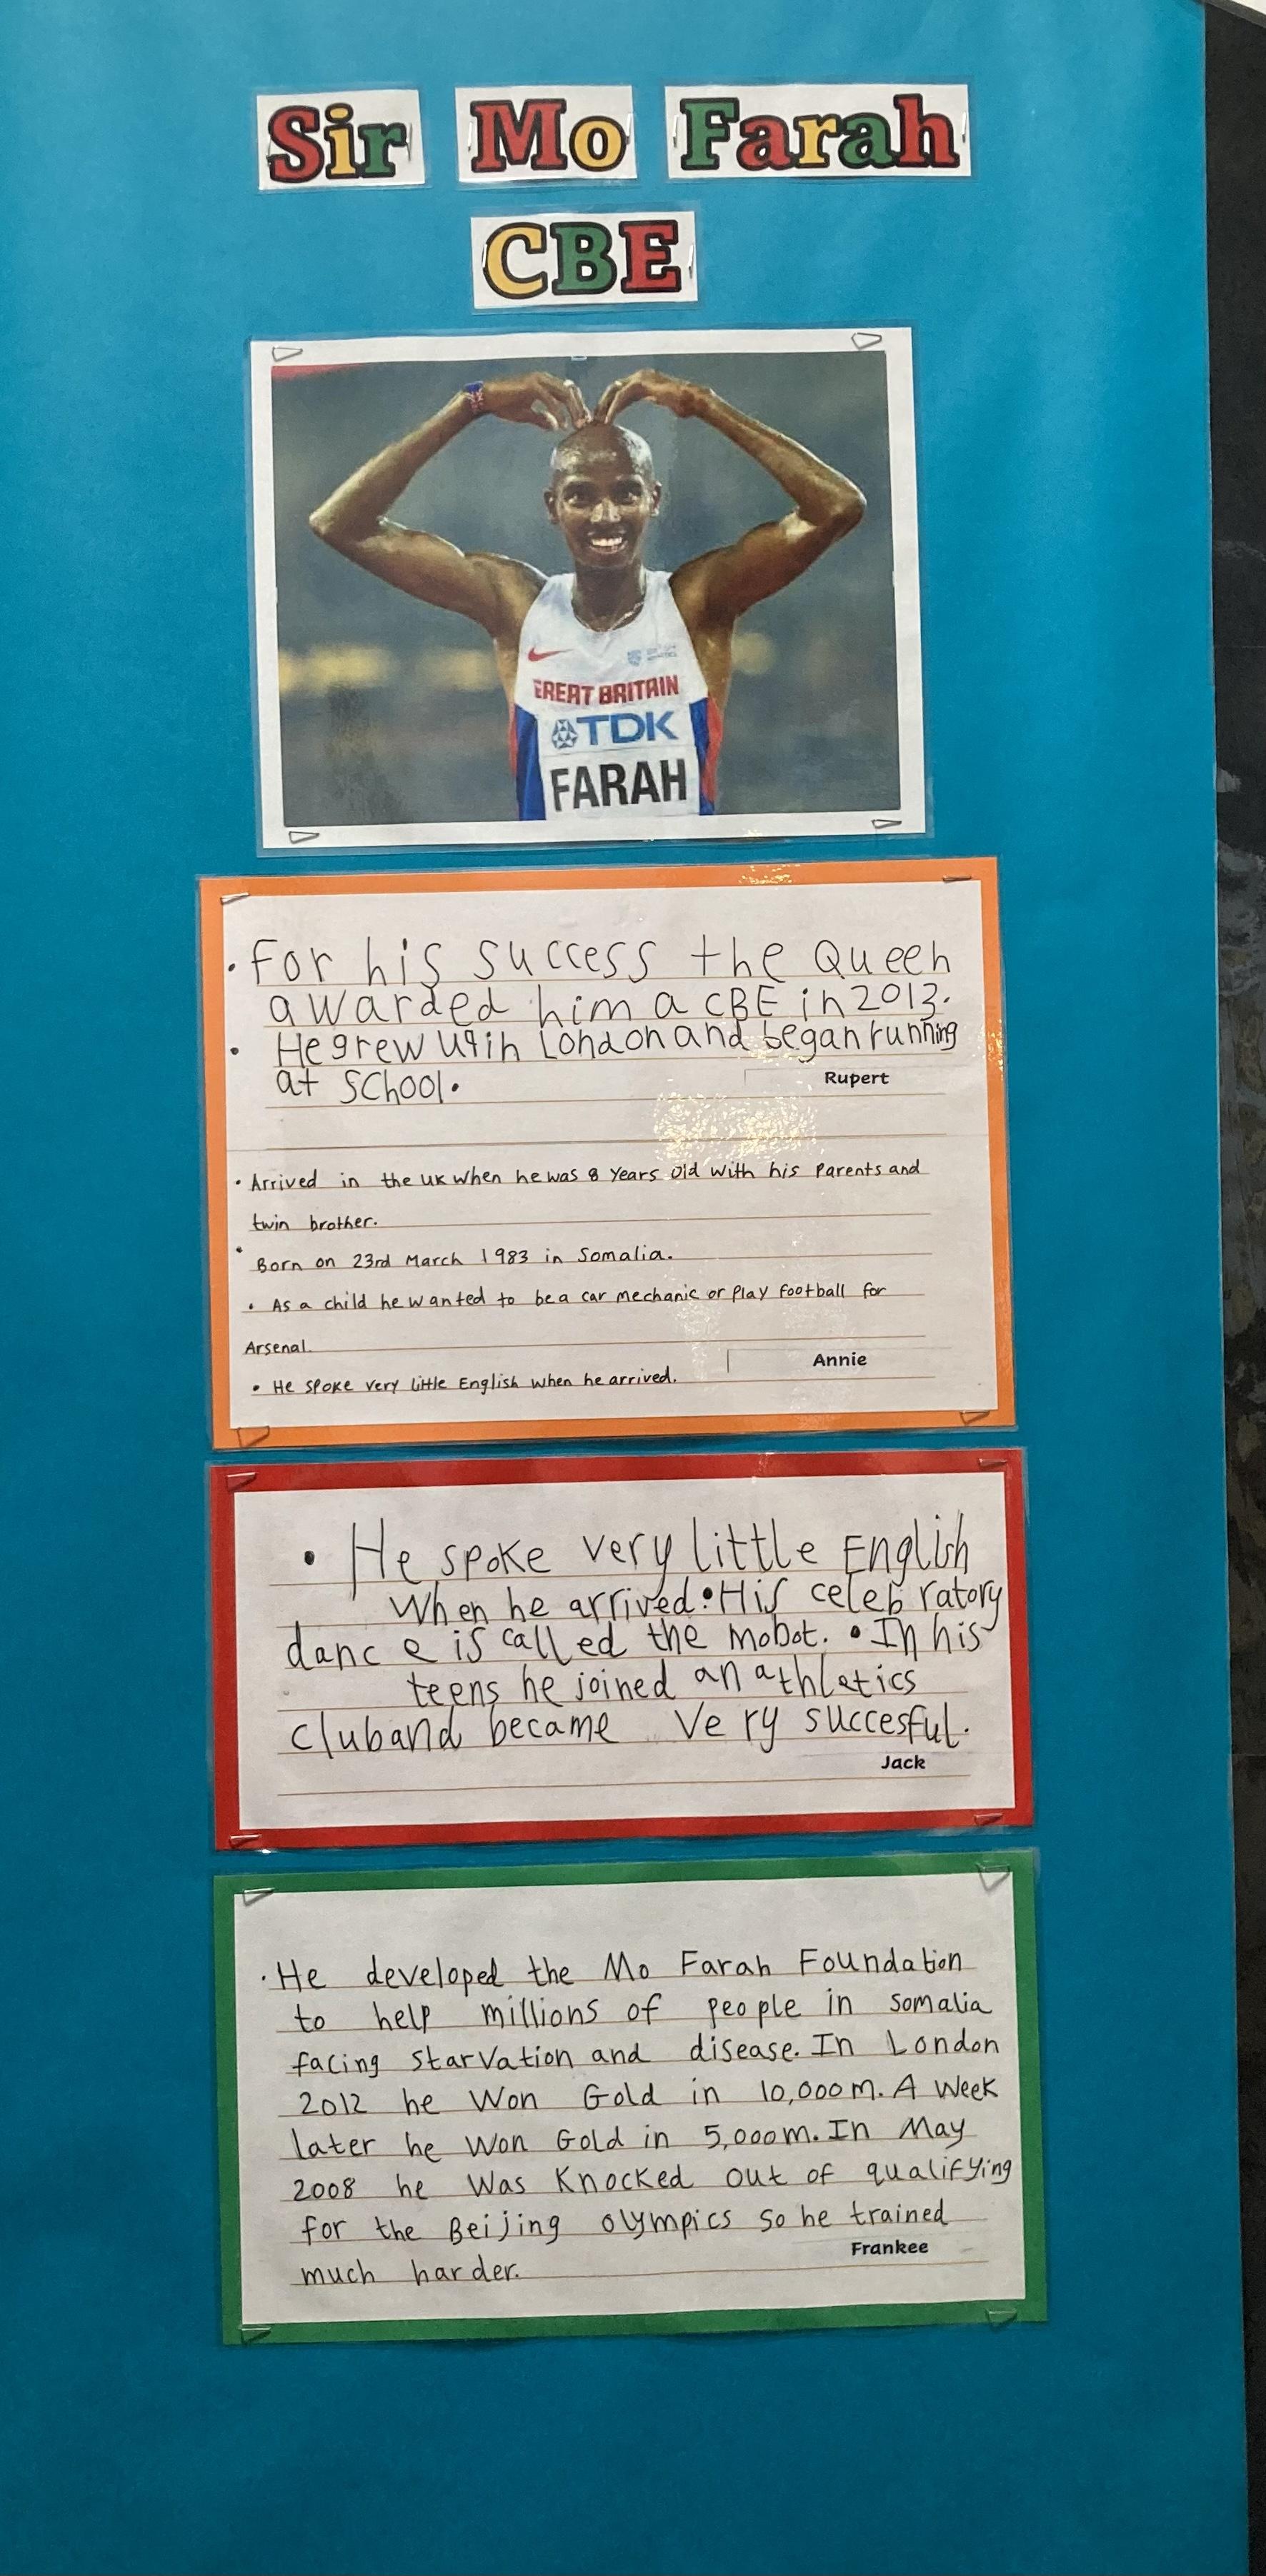 Sir Mo Farah
CBE
GREAT BRITAIN
TDK
FARAH
• For his success the Queen
awarded him a CBE in 2013.
• He grew up in London and began running
at school.
Rupert
• Arrived in the UK when he was 8 years old with his Parents and
twin brother.
• Born on 23rd March 1983 in Somalia.
• As a child he wanted to be a car mechanic or play football for
Arsenal.
Annie
• He spoke very little English when he arrived.
• He spoke very little English
when he arrived. • His celebratory
dance is called the mobot. • In his
teens he joined an athletics
club and became very succesful.
Jack
• He developed the Mo Farah Foundation
to help millions of people in Somalia
facing starvation and disease. In London
2012 he won Gold in 10,000m. A week
later he won Gold in 5,000m. In May
2008 he was knocked out of qualifying
for the Beijing olympics so he trained
Frankee
much harder.